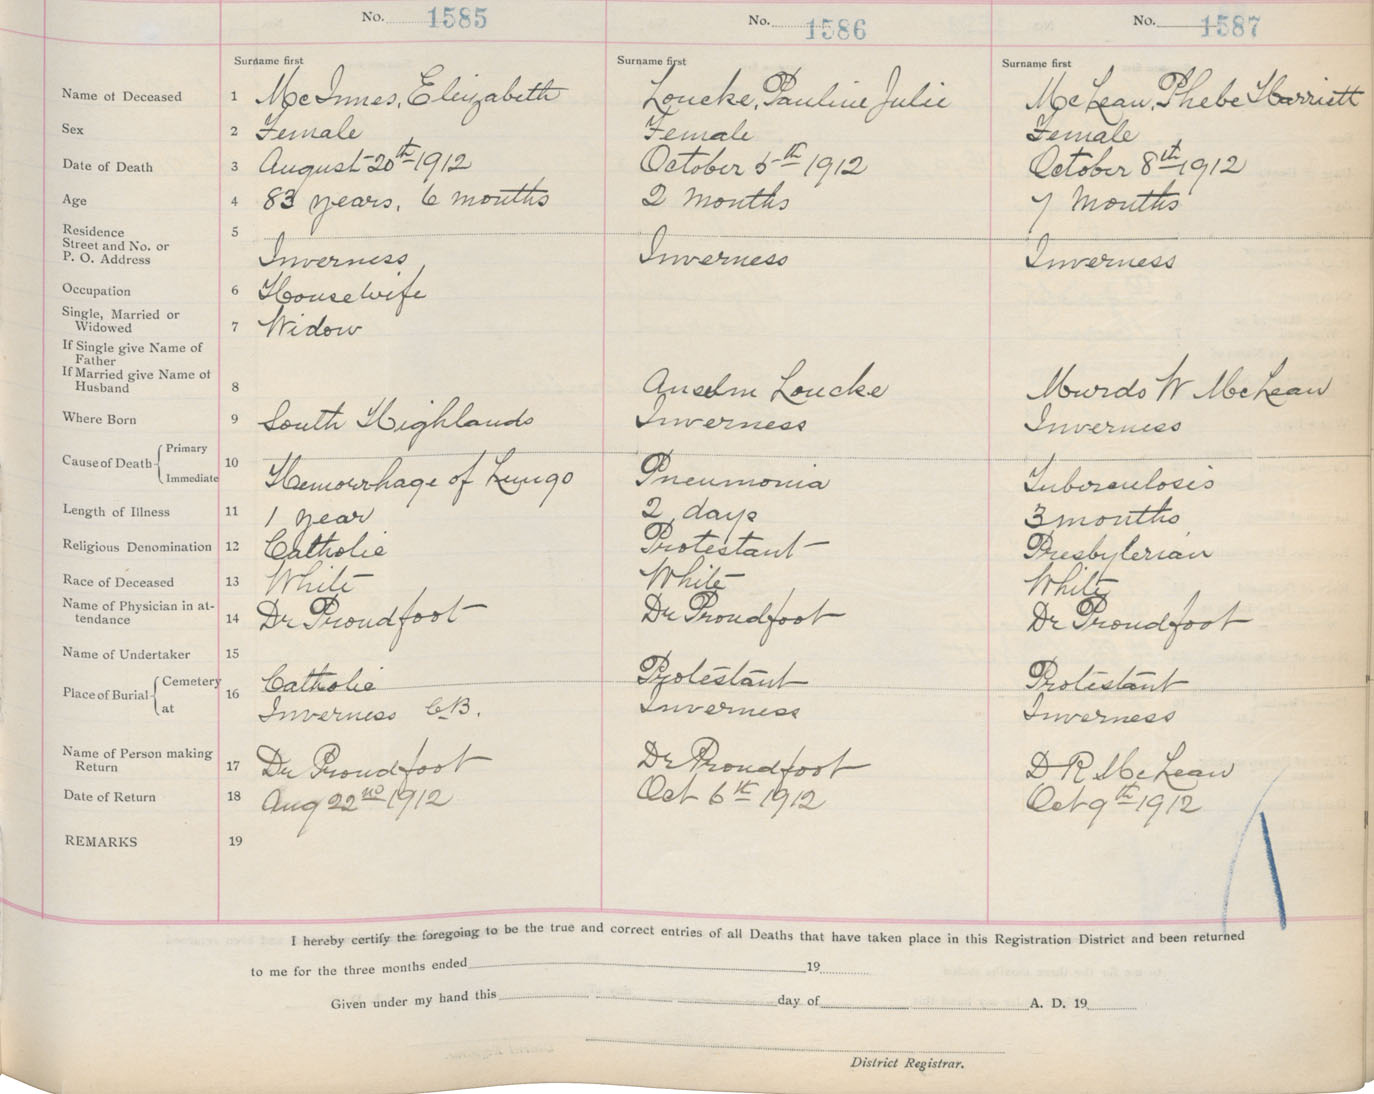 No. 1585 No. 1586 No. 1587
Surname first Surname first Surname first
Name of Deceased 1 McInnes, Elizabeth Loucke, Pauline Julie McLean, Phebe Harriett
Sex 2 Female Female Female
Date of Death 3 August 20th 1912 October 5th 1912 October 8th 1912
Age 4 83 years, 6 months 2 months 7 months
Residence 5
Street and No. or
P. O. Address Inverness Inverness Inverness
Occupation 6 Housewife
Single, Married or
Widowed 7 Widow
If Single give Name of
Father
If Married give Name of
Husband 8 Anselm Loucke Murdo W McLean
Where Born 9 South Highlands Inverness Inverness
Cause of Death Primary 10
Immediate Hemorrhage of Lungs Pneumonia Tuberculosis
Length of Illness 11 1 year 2 days 3 months
Religious Denomination 12 Catholic Protestant Presbyterian
Race of Deceased 13 White White White
Name of Physician in at-
tendance 14 Dr Proudfoot Dr Proudfoot Dr Proudfoot
Name of Undertaker 15
Place of Burial Cemetery 16 Catholic Protestant Protestant
at Inverness C.B. Inverness Inverness
Name of Person making
Return 17 Dr Proudfoot Dr Proudfoot D R McLean
Date of Return 18 Aug 22nd 1912 Oct 6th 1912 Oct 9th 1912
REMARKS 19
I hereby certify the foregoing to be the true and correct entries of all Deaths that have taken place in this Registration District and been returned
to me for the three months ended 19
Given under my hand this day of A. D. 19
District Registrar.